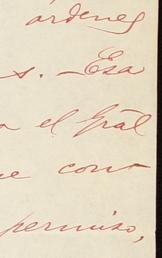 órdenes
s. - Esa
a el Gral
ue con-
permiso,